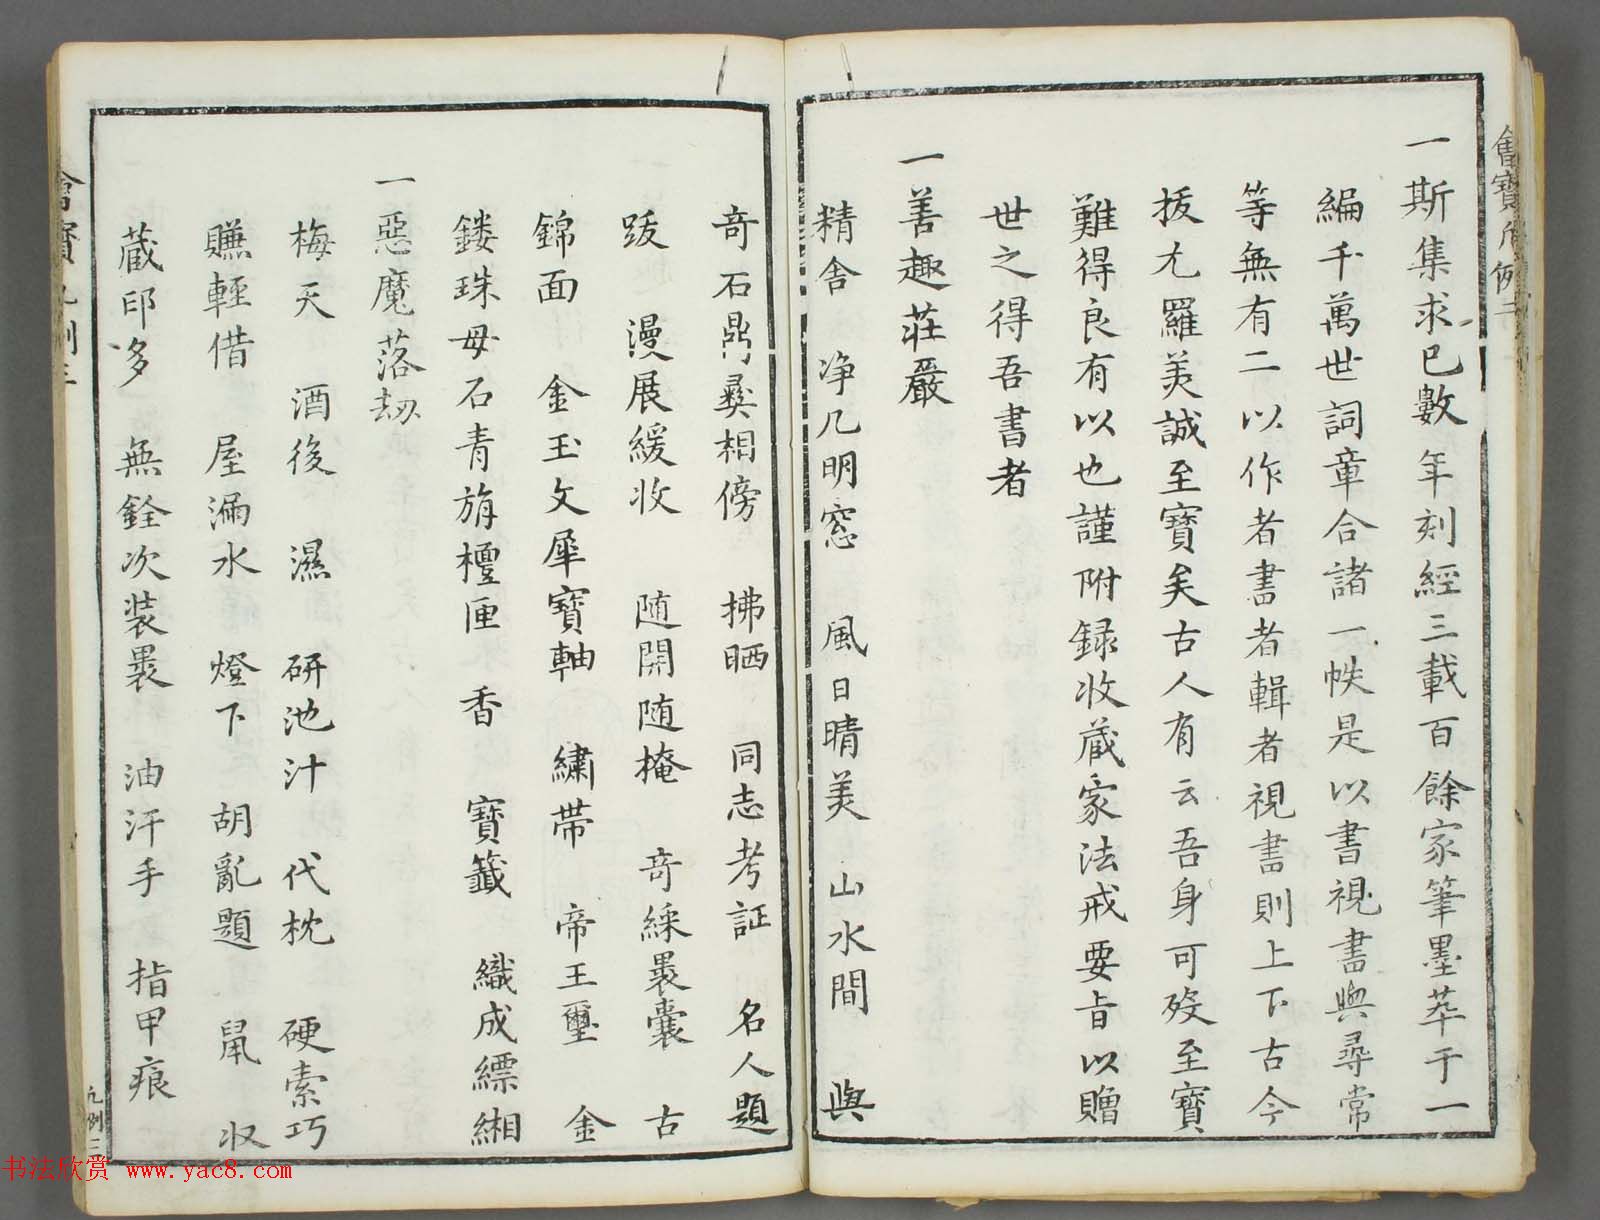 一斯集求已數年刻經三載百餘家筆墨萃于一
編千萬世詞章合諸一帙是以書視書與尋常
等無有二以作者書者輯者視書則上下古今
拔尤羅美誠至寶矣古人有云吾身可殁至寶
難得良有以也謹附録收蔵家法戒要旨以贈
世之得吾書者
一善趣莊嚴
精舎 净几明窓 風日晴美 山水間 與
竒石鼎彝相傍 拂晒 同志考証 名人題
跋 漫展緩收 随開随掩 竒綵裹囊 古
錦面 金玉文犀寶軸 繡帶 帝王璽 金
鏤珠母石青旃檀匣 香 寶籤 織成縹緗
一惡魔落劫
梅天 酒後 濕 研池汁 代枕 硬索巧
賺輕借 屋漏水 燈下 胡亂題 鼠 收
蔵印多 無銓次装裹 油汗手 指甲痕
凡例三
书法欣赏 www.yac8.com